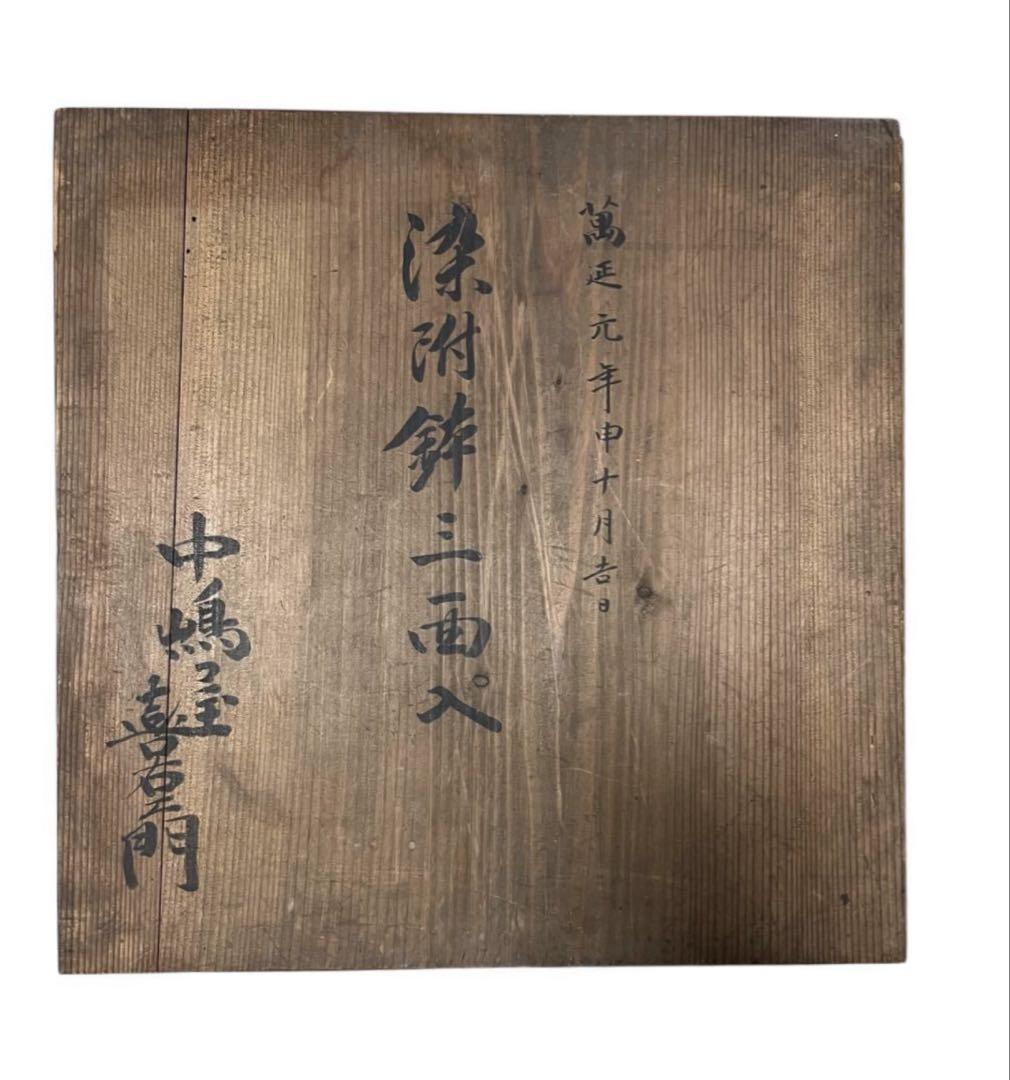 萬延元年申十月吉日
染附鉢三面入
中嶋屋
喜右衛門